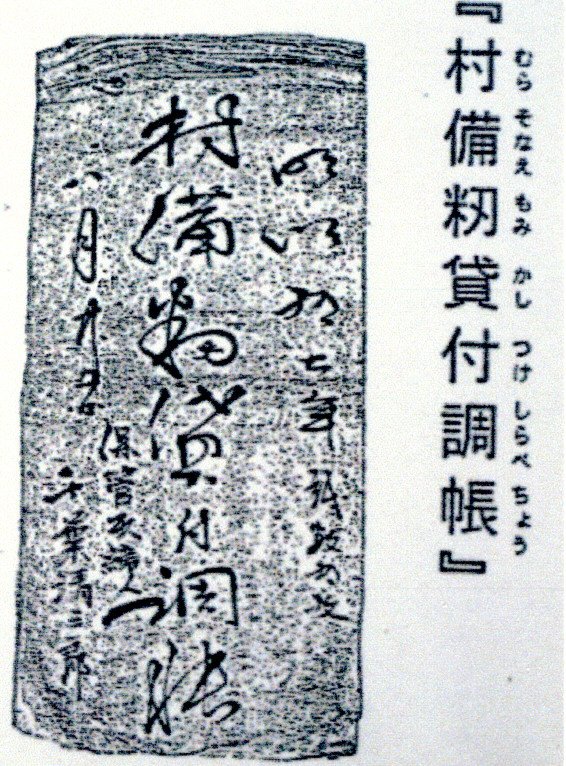 『村備籾貸付調帳』
むら そなえ もみ かし つけ しらべ ちょう
明治初七年
村備籾貸付調帳
八月九日
千葉清三郎